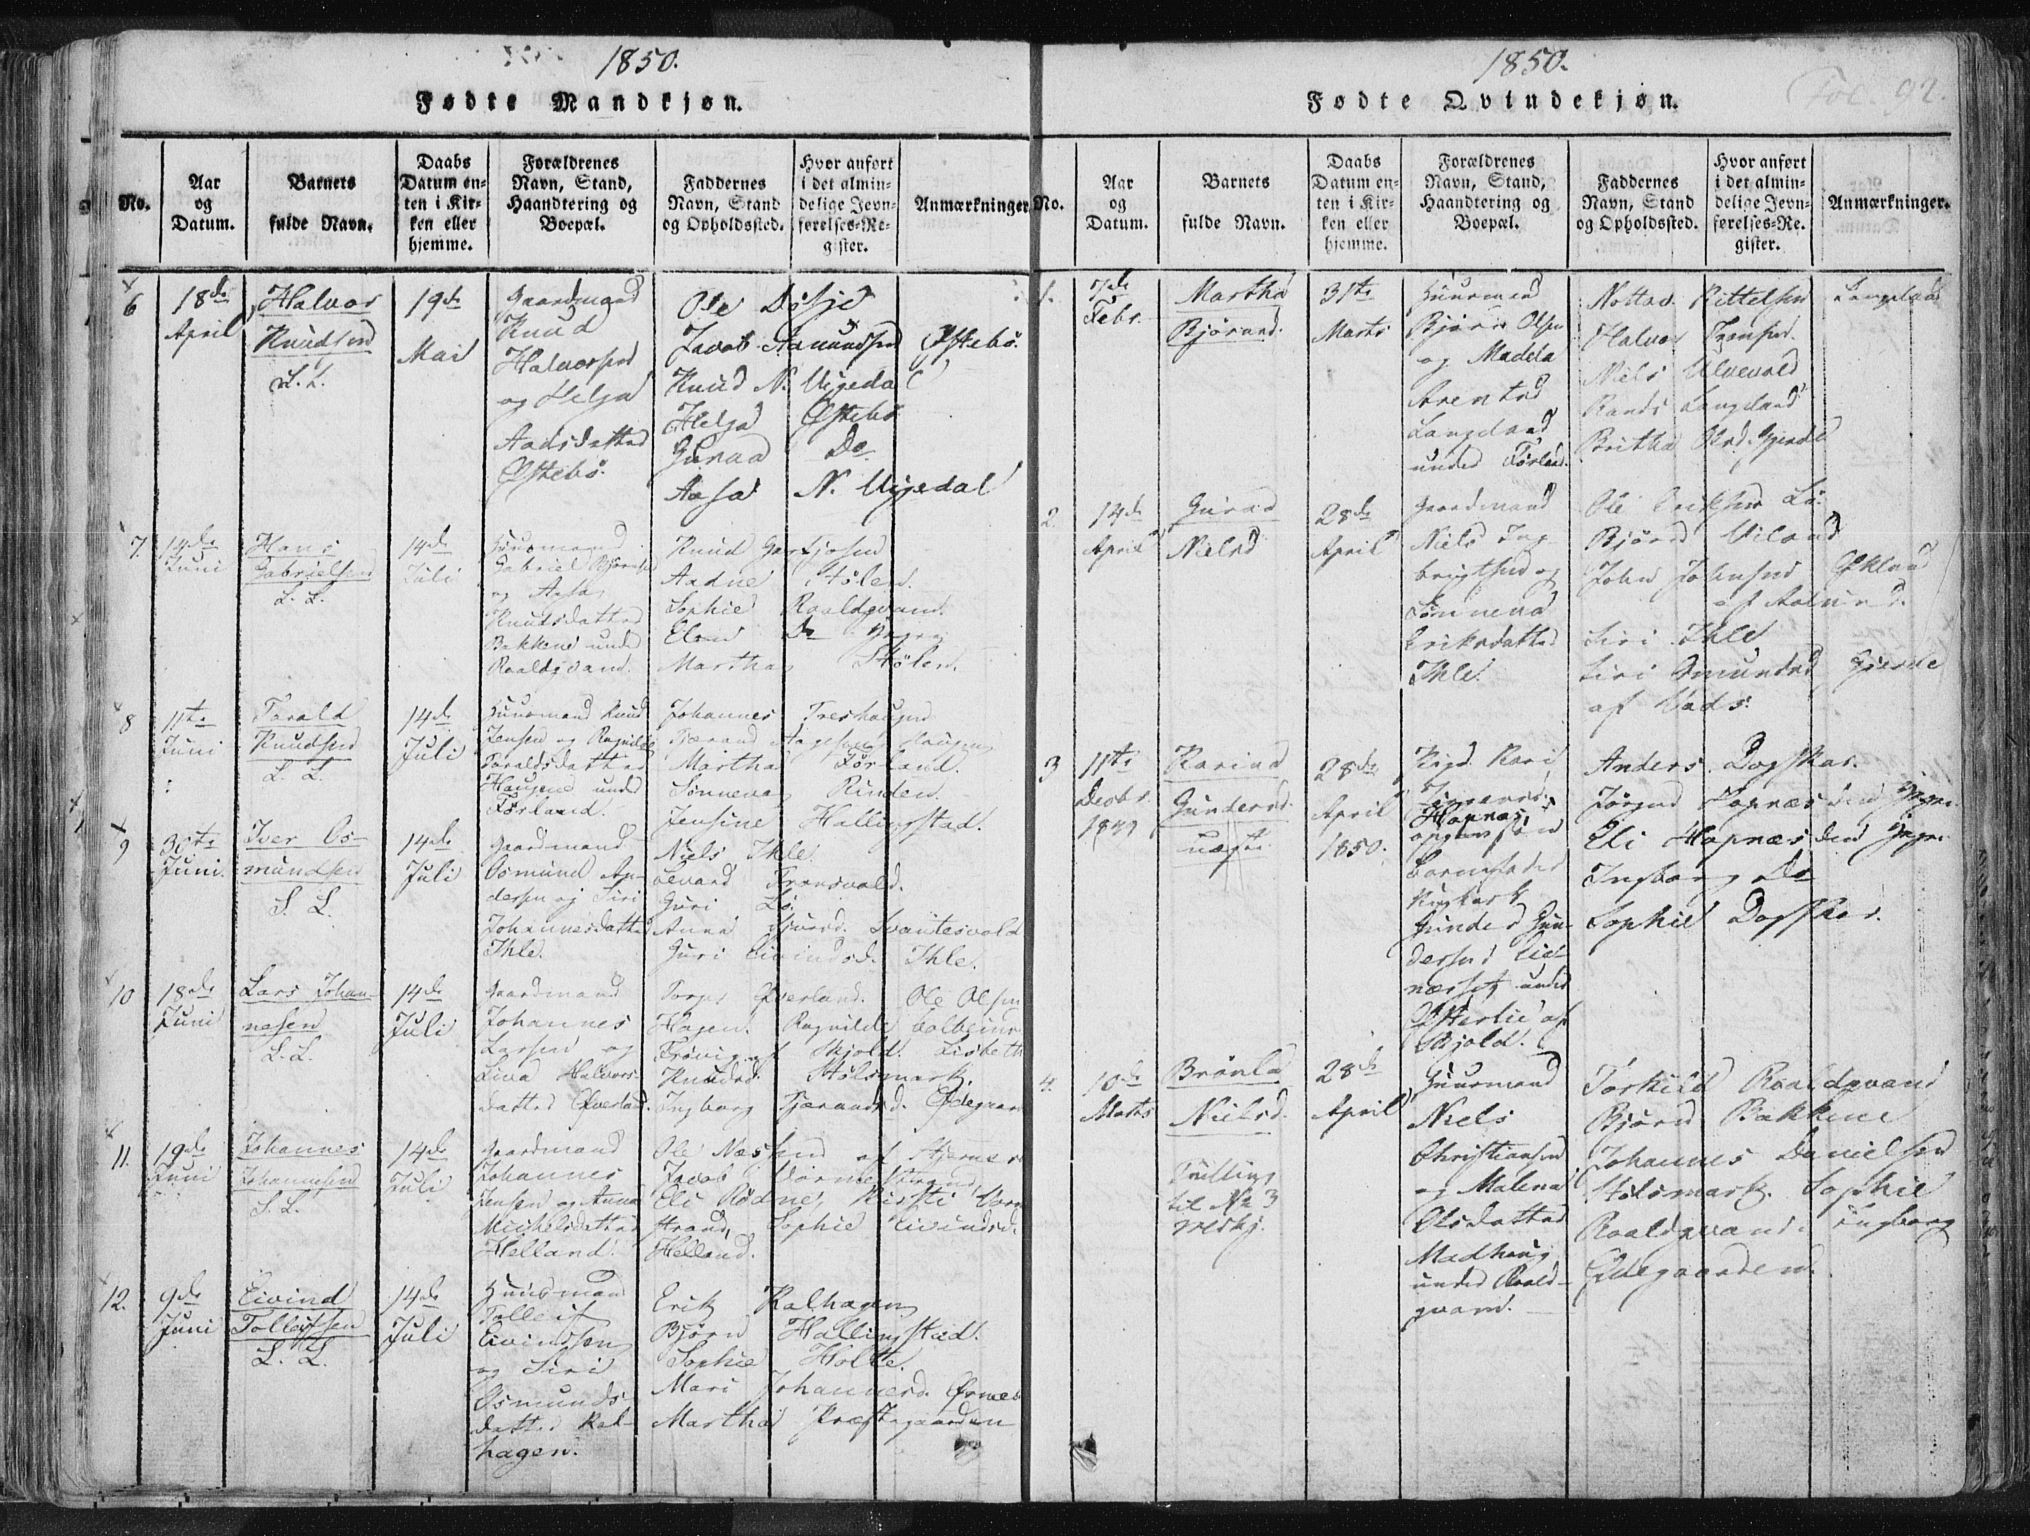 1850.
Fødte Mandkjøn.
No.
Aar
og
Datum.
Barnets
fulde Navn.
Daabs
Datum en-
ten i Kir-
ken eller
hjemme.
Forældrenes
Navn, Stand,
Haandtering og
Boepæl.
Faddernes
Navn, Stand
og Opholdssted.
Hvor anført
i det almin-
delige Jevn-
førelses-Re-
gister.
Anmærkninger
6
18de
April
Halvor
Knudsen
S. L.
19de
Mai
Gaardmand
Knud
Halvorsen
og Helga
Aadsdatter
Østebø.
Ole
Jacob Aamundsen Østebø.
Knud N. Vigedal
Helga Østebø
Guraa Do
Aasa N. Vigedal
7.
14de
Juni
Hans
Gabrielsen
L. L.
14de
Juli
Huusmand
Gabriel Bjørnsen
og Aasa
Knudsdatter
Bakkene under
Raaldqvam.
Knud
Aadne Stølen.
Sophie Raaldqvam.
Elen Do
Martha Stølen.
8
11te
Juni
Torald
Knudsen
L. L.
14de
Juli
Huusmand Knud
Jensen og Ragnilde
Toraldsdatter
Haugene under
Førland.
Johannes
Tjærand Aagesen Haugen
Martha Førland.
Sønneva Rinden.
Jensine Hallingstad.
9
30te
Juni
Iver Os-
mundsen
S. L.
14de
Juli
Gaardmand
Osmund An-
dersen og Siri
Johannesdatter
Ihle.
Niels Ihle.
Guri Lø.
Anna Svantesvold
Guri Eivindsd. Ihle.
10
18de
Juni
Lars Johan-
nesen
L. L.
14de
Juli
Gaardmand
Johannes
Larsen og
Lisa Halvors-
datter Øverland.
Torger Øverland. Ole Olsen
Hagen. Ragnilde
Frøvig af Skjold. Lisbeth
Knudsd. Stølsmark.
Ingborg Tjærandsd. Ødegaard
11.
19de
Juni
Johannes
Johannesen
S. L.
14de
Juli
Gaardmand
Johannes
Jensen og Anna
Michelsdatter
Helland.
Ole af
Jacob
Eli Rødne, Kirsti
strand, Sophie Eivindsd.
Helland.
12.
9de
Juni
Eivind
Tolleifsen
L. L.
14de
Juli
Huusmand
Tolleif
Eivindsen
og Siri
Osmunds-
datter Kal-
hagen.
Erik Kalhagen
Bjørn Hallingstad.
Sophie Holte.
Mari Johannesd.
Martha Præstegaarden
1850.
Fol. 92.
Fødte Qvindekjøn.
No.
Aar
og
Datum.
Barnets
fulde Navn.
Daabs
Datum en-
ten i Kir-
ken eller
hjemme.
Forældrenes
Navn, Stand,
Haandtering og
Boepæl.
Faddernes
Navn, Stand
og Opholdssted.
Hvor anført
i det almin-
delige Jevn-
førelses-Re-
gister.
Anmærkninger.
1.
7de
Febr.
Martha
Bjørnsd.
31te
Marts
Huusmand
Bjørn Olsen
og Madela
Langeland
under Førland.
Kittelsen Langeland
Halvor
Niels Ulvevold
Langeland
Britha Olsd. Gjerde
2.
14de
April
Guraa
Nielsd.
28de
April
Gaardmand
Niels Ing-
brigtsen og
Sønneva
Eriksdatter
Ihle.
Ole Eriksen Lø.
Bjørn
John Johnsen Økland
af
Siri Ihle
Siri Omundsd. Gjerde
af Vads.
3
11te
Decbr.
1849
Karina
Gundersd.
uægte.
28de
April
1850.
Pige Kari
Hapnæs,
opgiven som
Barnefader
Ungkarl
Gunder Gun-
dersen
under
Østerlie af
Skjold.
Anders Dagskar.
Jørgen Hapnæs
Eli Hapnæs
Ingborg Do
Sophie Dagskar.
4.
10de
Marts
Brønla
Nielsd.
Trilling
til No 3
28de
April
Huusmand
Niels
Christiansen
og Malena
Olsdatter
Madhaug
under Raald-
qvam.
Torkild Raaldqvam
Bjørn Bakkene
Johannes Danielsen
Stølsmark. Sophie
Raaldqvam. Ingborg
Ødegaarden.